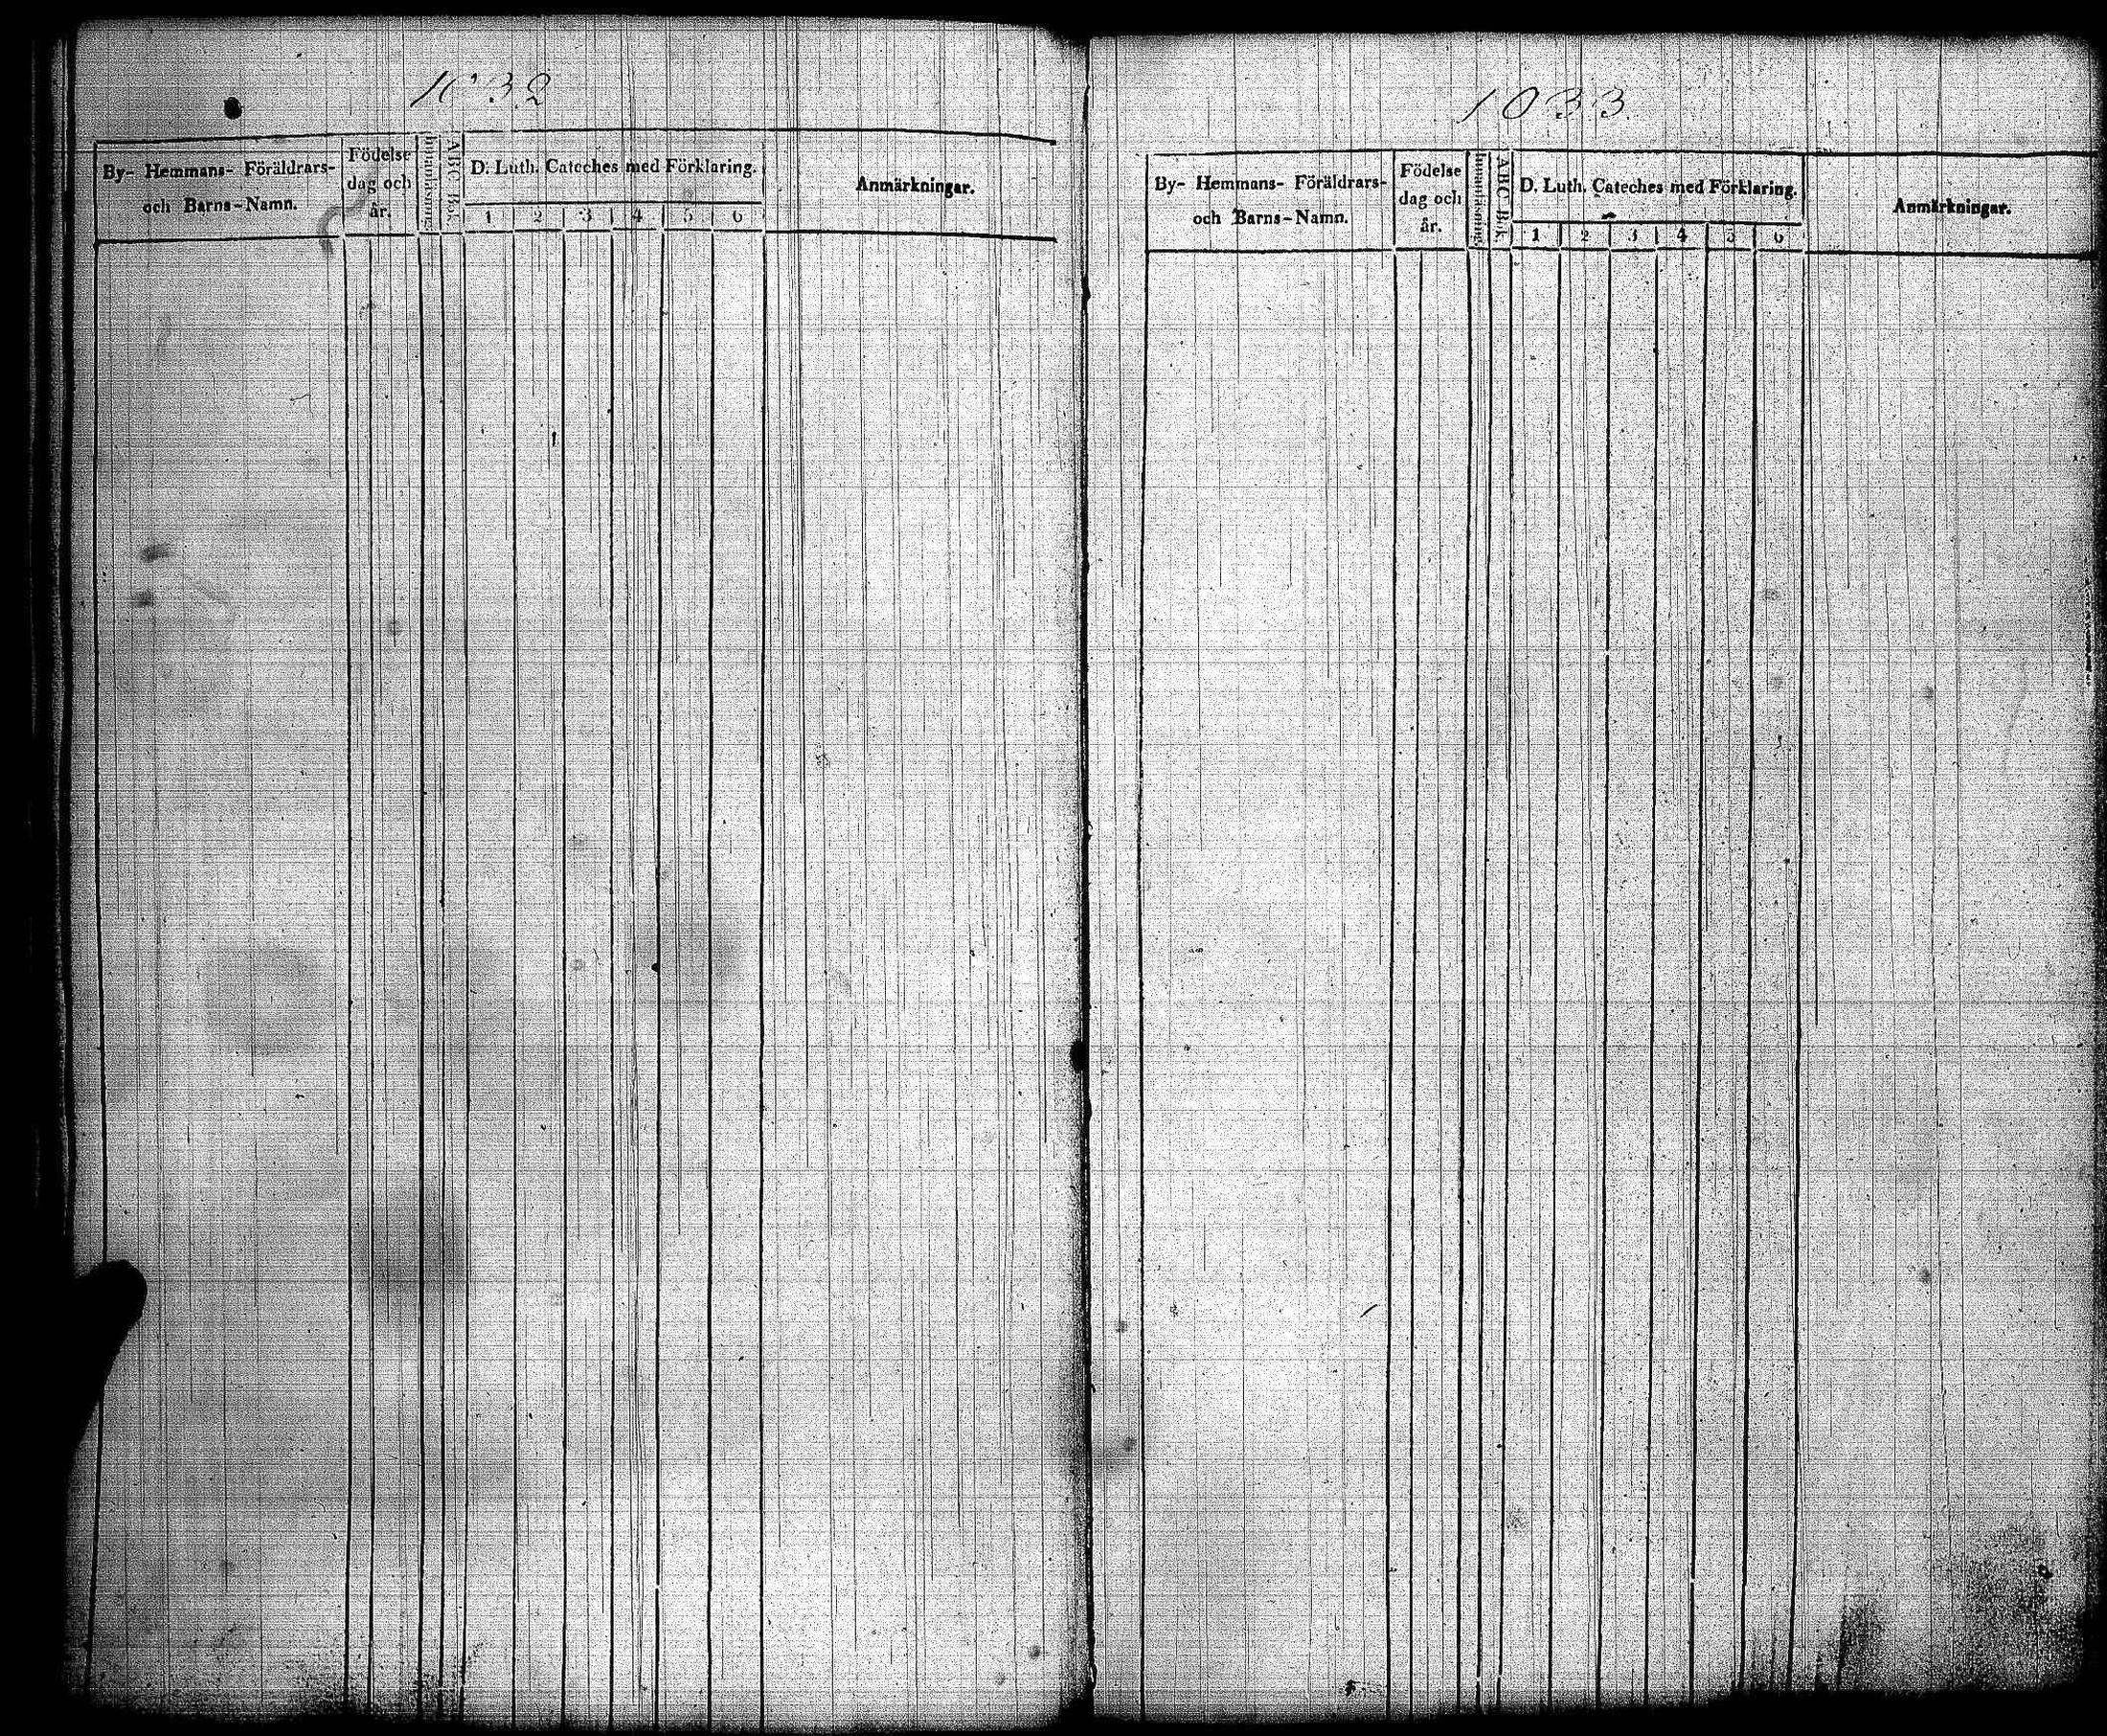 1032
By- Hemmans- Föräldrars-
och Barns-Namn.
Födelse
dag och
år.
Innanläsning.
ABC Bok.
D. Luth. Cateches med Förklaring.
1 2 3 4 5 6
Anmärkningar.
1033.
By- Hemmans- Föräldrars-
och Barns-Namn.
Födelse
dag och
år.
Innanläsning.
ABC Bok.
D. Luth. Cateches med Förklaring.
1 2 3 4 5 6
Anmärkningar.